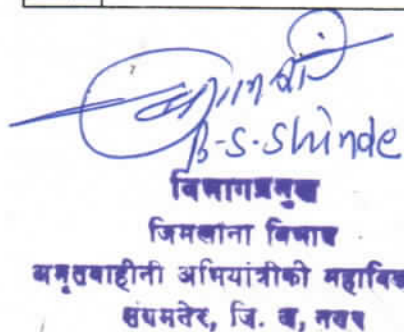 B-S-Shinde
विभागप्रमुख
जिमखाना विभाग
अमृतवाहीनी अभियांत्रीकी महाविद्य
संगमनेर, जि. अ, नगर